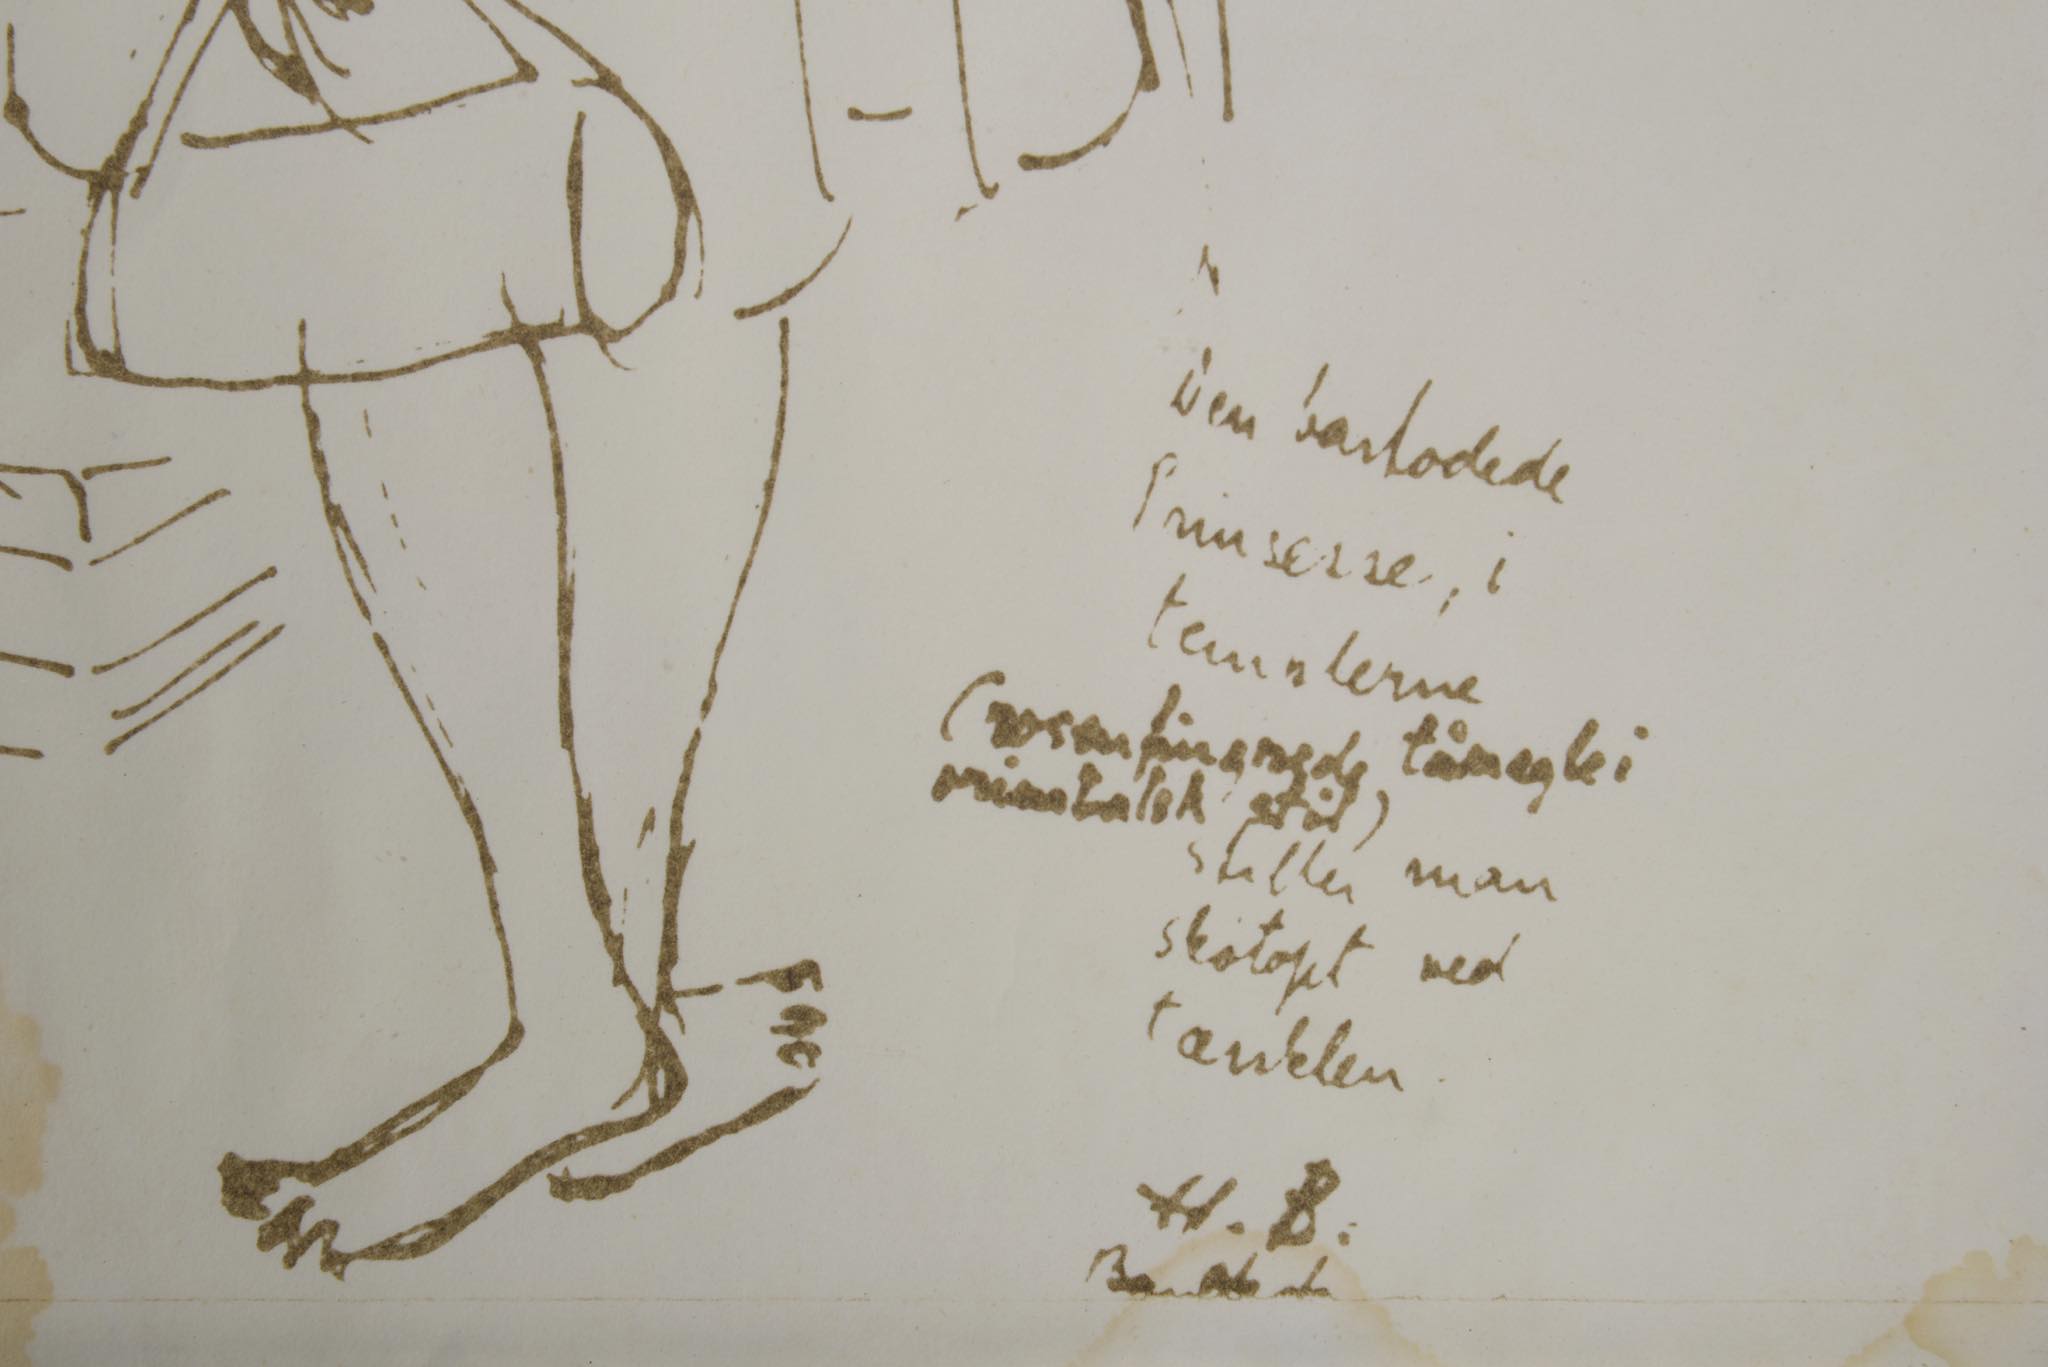 Den barfodede
Prinsesse, i
templerne
(rosenfingrede tåneglei
orientalsk stil)
stiller man
skotøjet ved
tærskelen.
H. B.